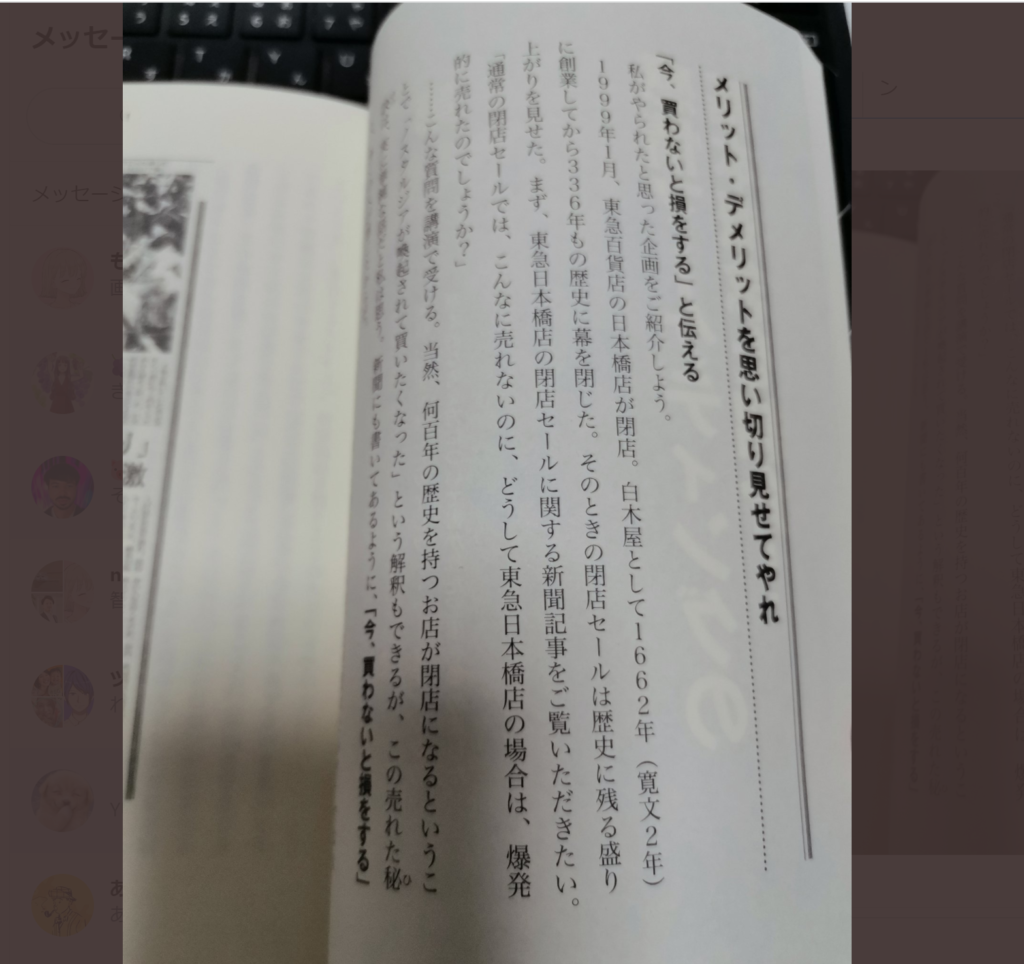 メリット・デメリットを思い切り見せてやれ
「今、買わないと損をする」と伝える
私がやられたと思った企画をご紹介しよう。
1999年1月、東急百貨店の日本橋店が閉店。白木屋として1662年(寛文2年)
に創業してから336年もの歴史に幕を閉じた。そのときの閉店セールは歴史に残る盛り
上がりを見せた。まず、東急日本橋店の閉店セールに関する新聞記事をご覧いただきたい。
「通常の閉店セールでは、こんなに売れないのに、どうして東急日本橋店の場合は、爆発
的に売れたのでしょうか?」
……こんな質問を講演で受ける。当然、何百年の歴史を持つお店が閉店になるというこ
とで「ノスタルジアが喚起されて買いたくなった」という解釈もできるが、この売れた秘
と私は思う。新聞にも書いてあるように、「今、買わないと損をする」
メッセー
メッセージ
ン